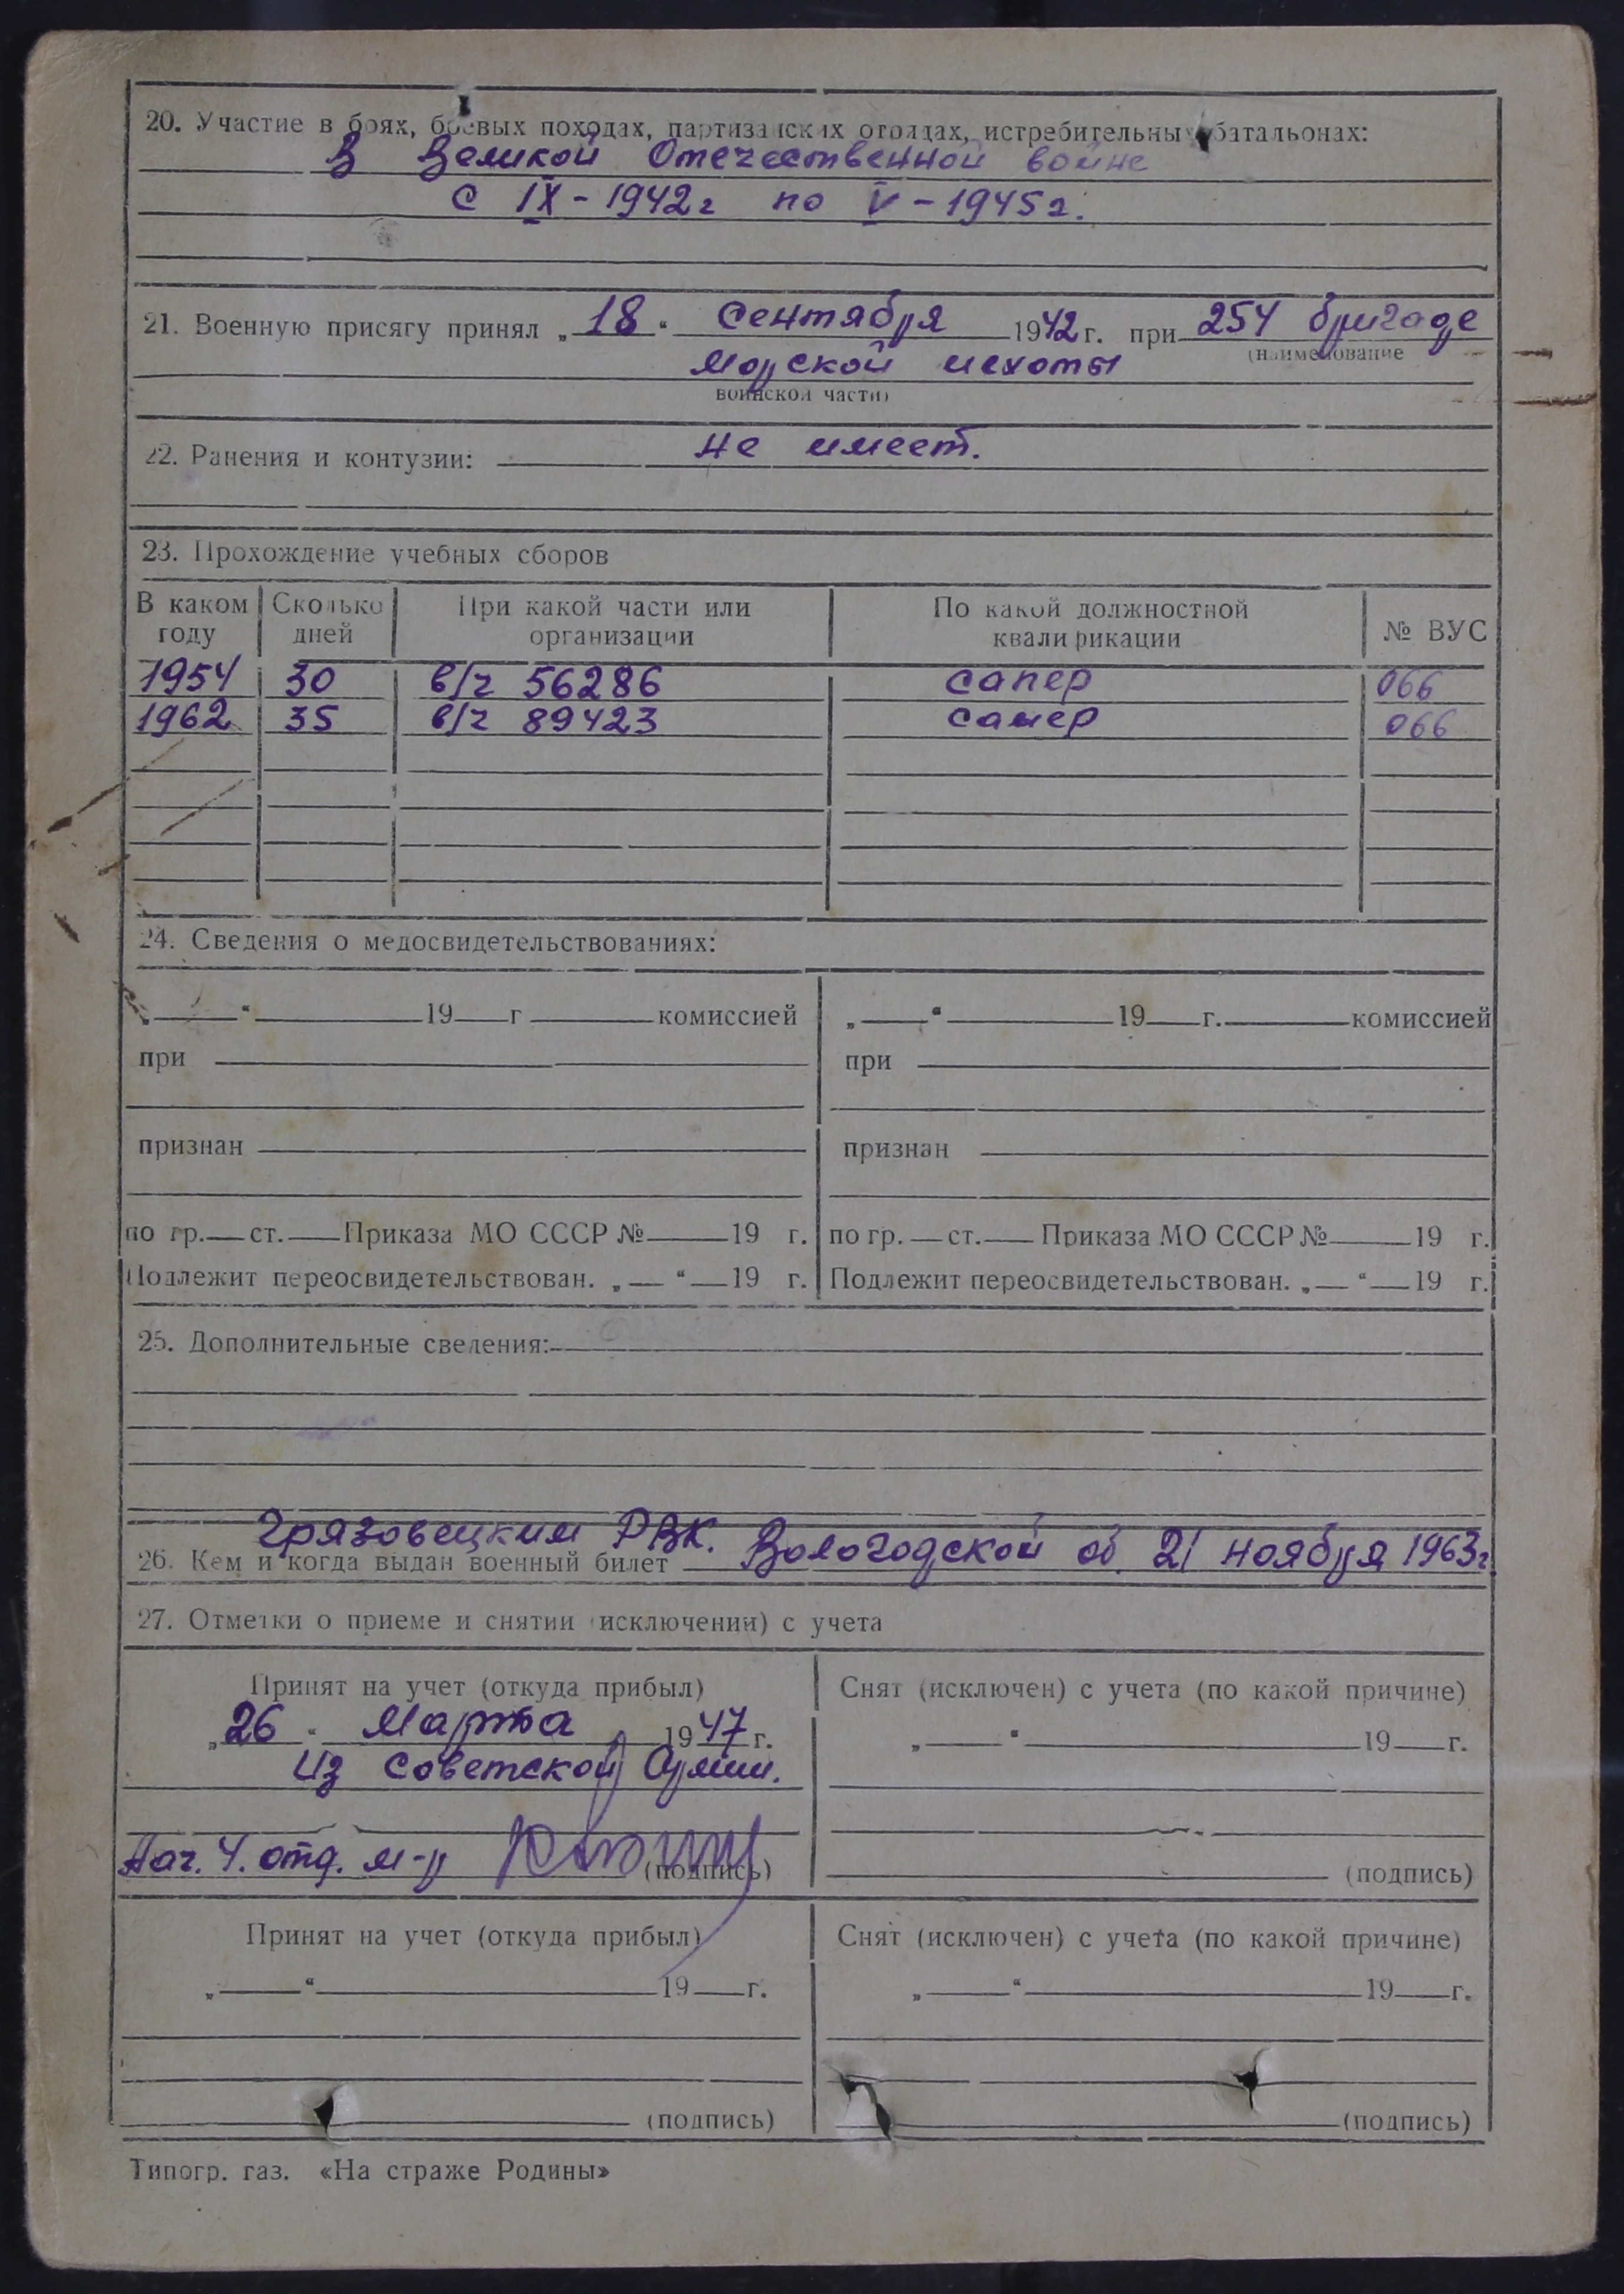 20. Участие в боях, боевых походах, партизанских отрядах, истребительных батальонах:
В Великой Отечественной войне
с IX - 1942 г по V - 1945 г.
21. Военную присягу принял „ 18 “ сентября 1942 г. при 254 бригаде
(наименование
Морской пехоты
воинской части)
22. Ранения и контузии: не имеет.
23. Прохождение учебных сборов
В каком году | Сколько дней | При какой части или организации | По какой должностной квалификации | № ВУС
1954 | 30 | в/ч 56286 | сапер | 066
1962 | 35 | в/ч 89423 | сапер | 066
24. Сведения о медосвидетельствованиях:
„ “ 19 г комиссией
при
признан
по гр. ст. Приказа МО СССР № 19 г.
Подлежит переосвидетельствован. „ “ 19 г.
„ “ 19 г. комиссией
при
признан
по гр. ст. Приказа МО СССР № 19 г.
Подлежит переосвидетельствован. „ “ 19 г.
25. Дополнительные сведения:
Грязовецким РВК.
26. Кем и когда выдан военный билет Вологодской об. 21 ноября 1963 г.
27. Отметки о приеме и снятии (исключении) с учета
Принят на учет (откуда прибыл)
„ 26 “ Марта 1947 г.
Из Советской Армии.
Нач. 4. отд. м-р
(подпись)
Снят (исключен) с учета (по какой причине)
„ “ 19 г.
(подпись)
Принят на учет (откуда прибыл)
„ “ 19 г.
(подпись)
Снят (исключен) с учета (по какой причине)
„ “ 19 г.
(подпись)
Типогр. газ. «На страже Родины»